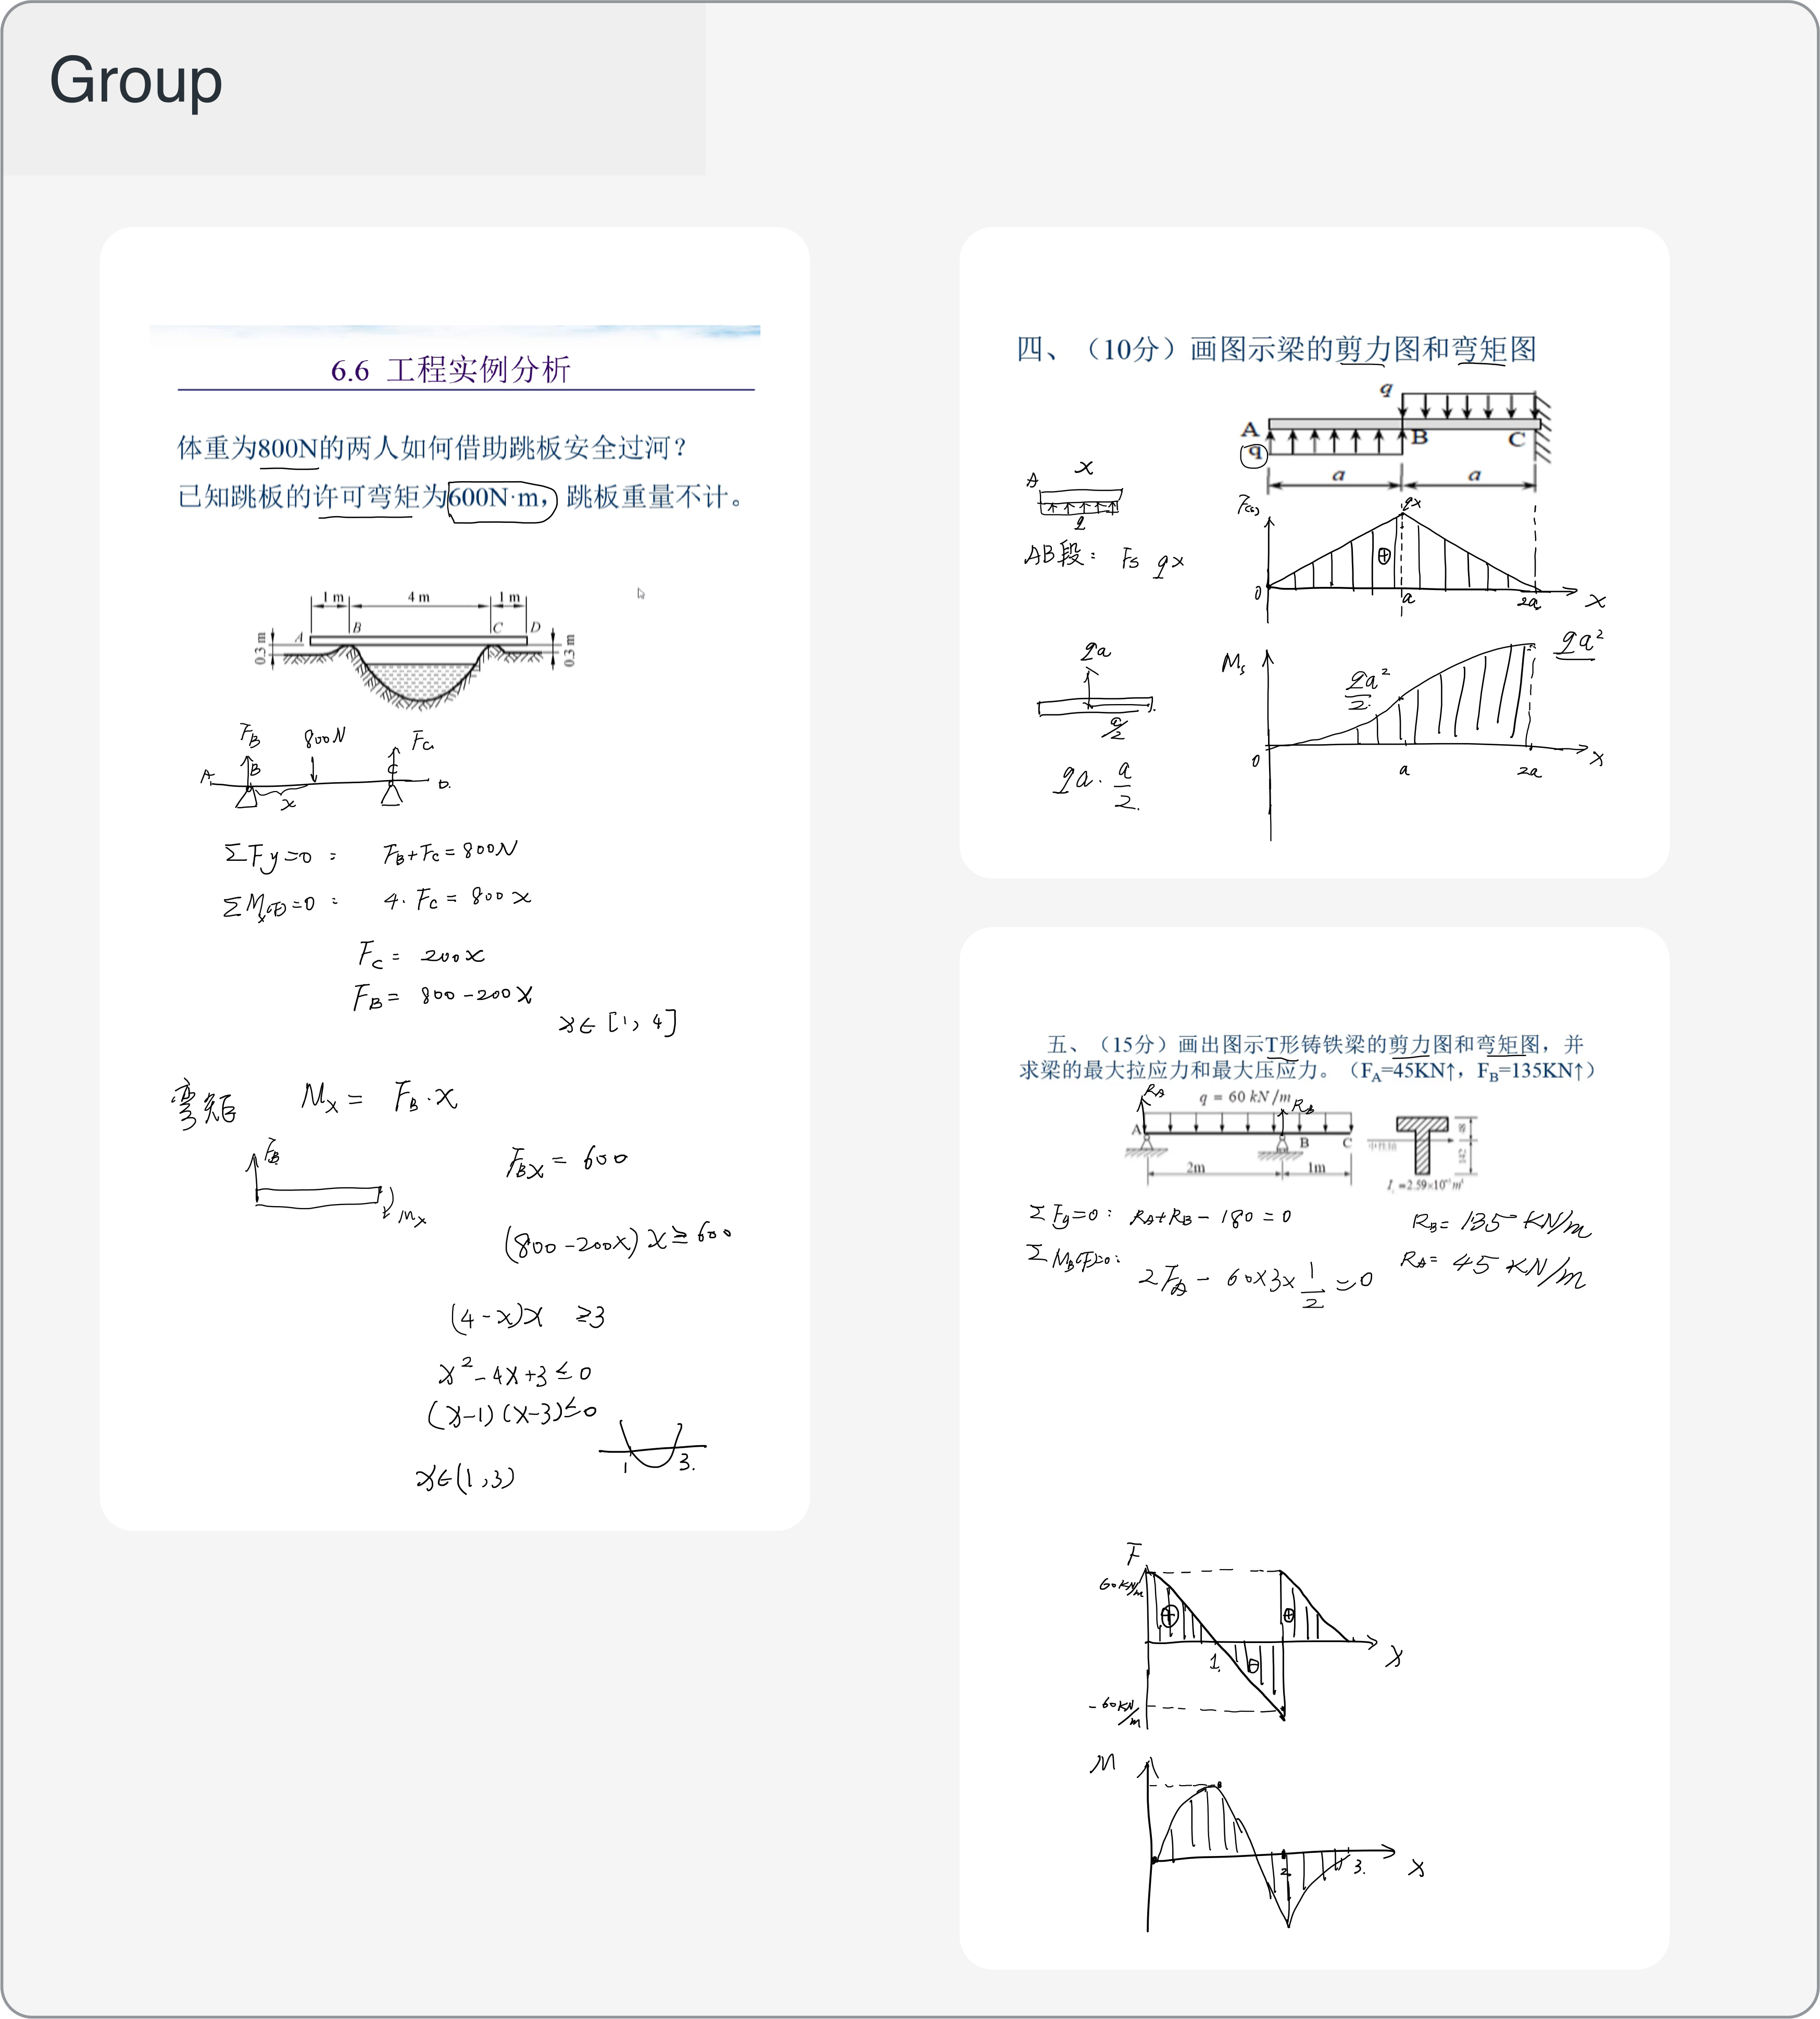 Group
6.6 工程实例分析
体重为800N的两人如何借助跳板安全过河？
已知跳板的许可弯矩为600N·m，跳板重量不计。
1 m 4 m 1 m
A B C D
0.3 m 0.3 m
F_B 800N F_C
A B C D.
x
ΣFy=0： F_B+F_C=800N
4·F_C=800x
F_C= 200x
F_B= 800-200x
x∈[1, 4]
弯矩 M_x= F_B·x
F_B
M_x
F_Bx=600
(800-200x)x≥600
(4-x)x ≥3
x²-4x+3≤0
(x-1)(x-3)≤0
1 3.
x∈(1,3)
四、（10分）画图示梁的剪力图和弯矩图
q
A B C
q
a a
x
A
q
AB段： Fs qx
qx
⊕
0 a 2a x
qa
a/2
qa·a/2.
Ms
qa²/2
qa²
0 a 2a x
五、（15分）画出图示T形铸铁梁的剪力图和弯矩图，并
求梁的最大拉应力和最大压应力。（F_A=45KN↑，F_B=135KN↑）
R_A q = 60 kN/m R_B
A B C
2m 1m
48
142
中性轴
ΣFy=0: R_A+R_B-180=0
R_B= 135 KN/m
2F_A-60×3×1/2=0
R_A= 45 KN/m
F
60KN/m
⊕ ⊖ ⊕
1. x
-60KN/m
M
2 3. x